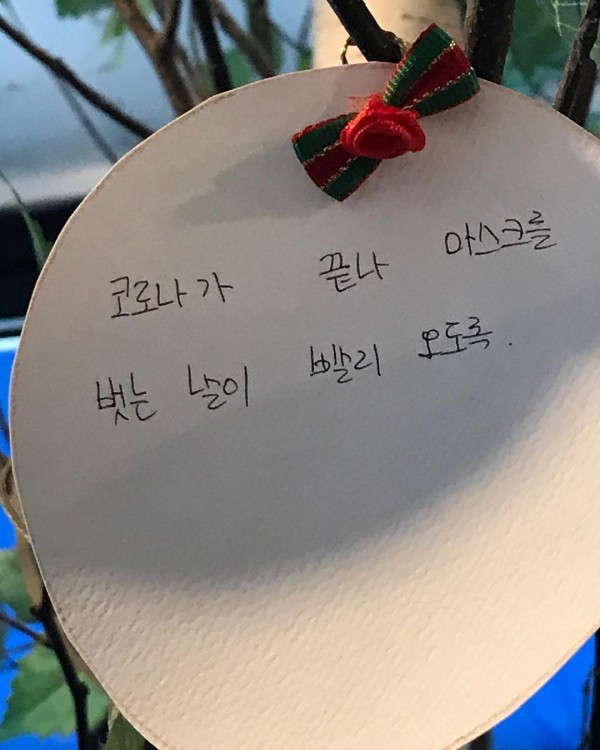 코로나가 끝나 마스크를
벗는 날이 빨리 오도록.